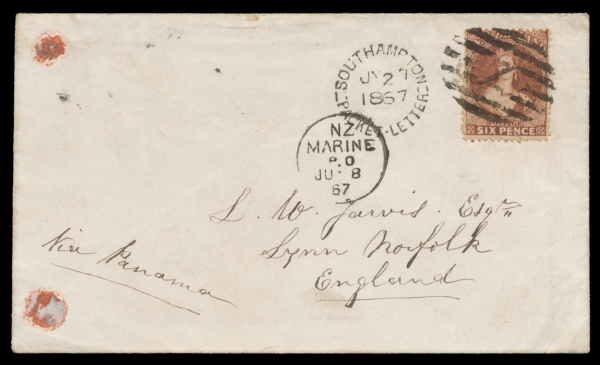 SOUTHAMPTON
PACKET-LETTER
JY 27
1867
NZ
MARINE
P.O
JU 8
67
SIX PENCE
L. W. Jarvis. Esqr
Lynn Norfolk
England
Via Panama